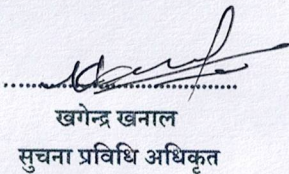 खगेन्द्र खनाल
सुचना प्रविधि अधिकृत